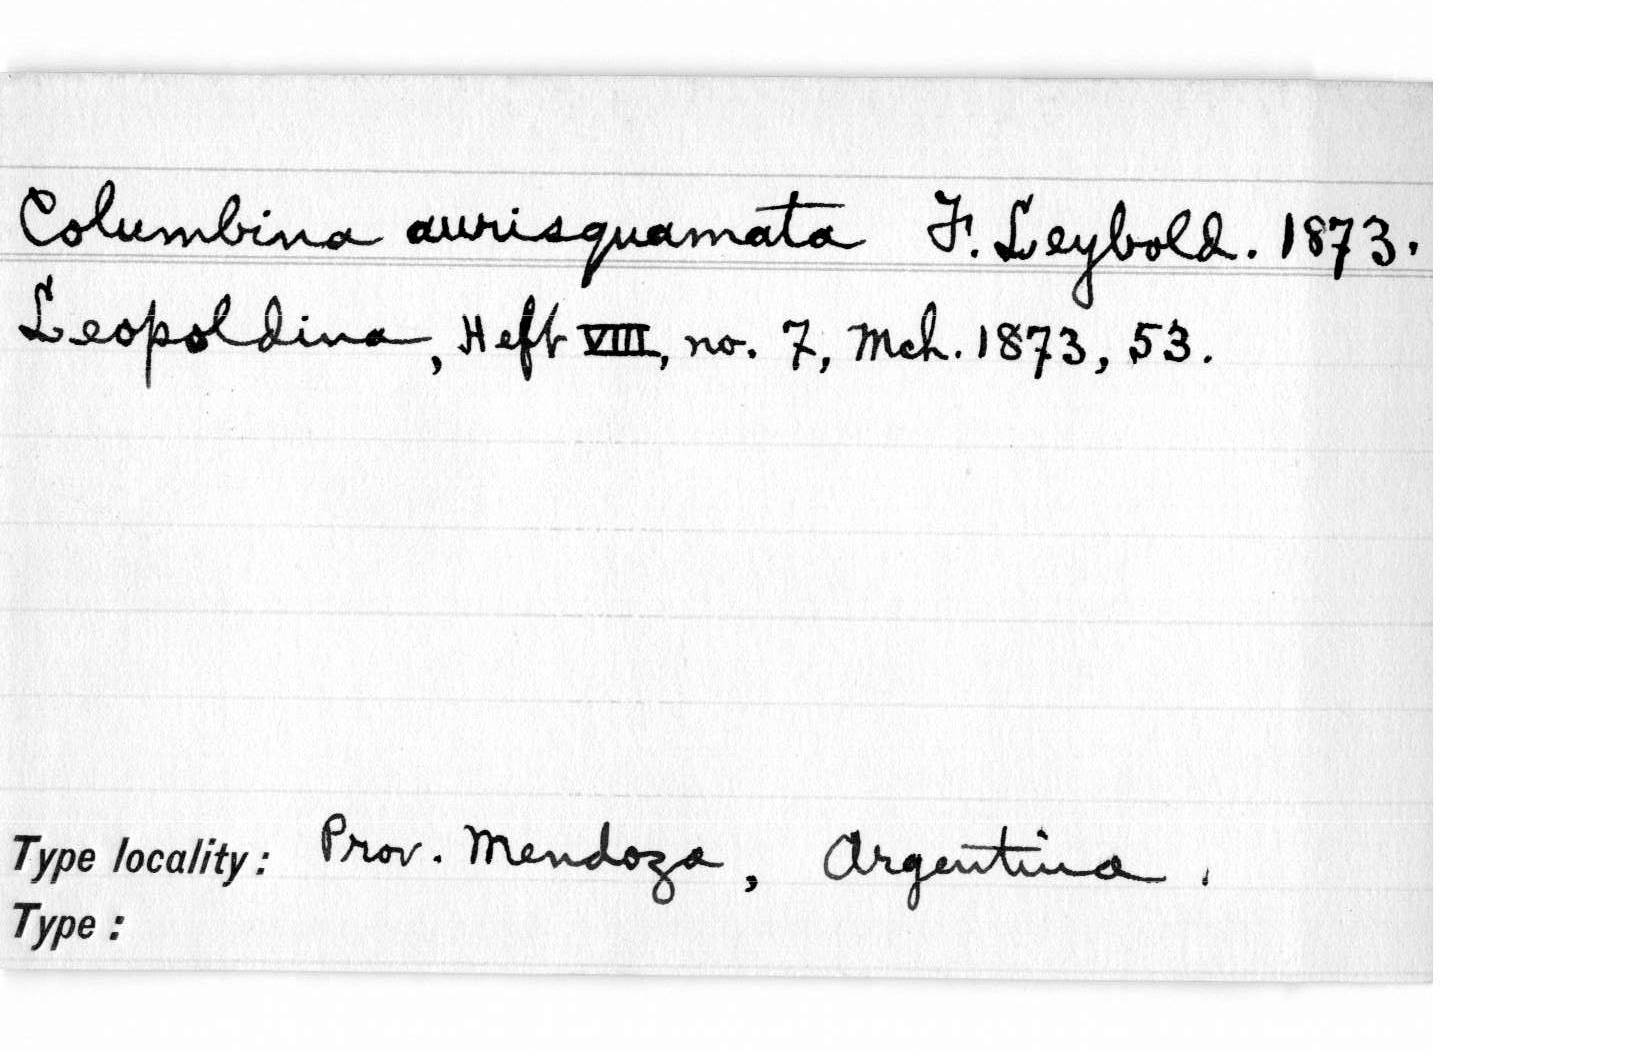 Columbina aurisquamata F. Leybold. 1873.
Leopoldina, Heft VIII, no. 7, Mch. 1873, 53.
Type locality: Prov. Mendoza, Argentina.
Type: